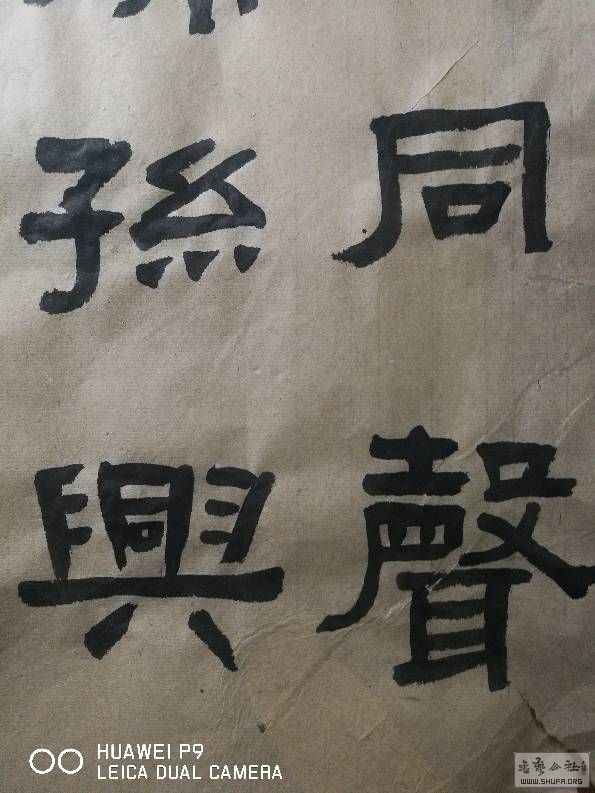 同聲
孫興
HUAWEI P9
LEICA DUAL CAMERA
書藝公社
WWW.SHUFA.ORG